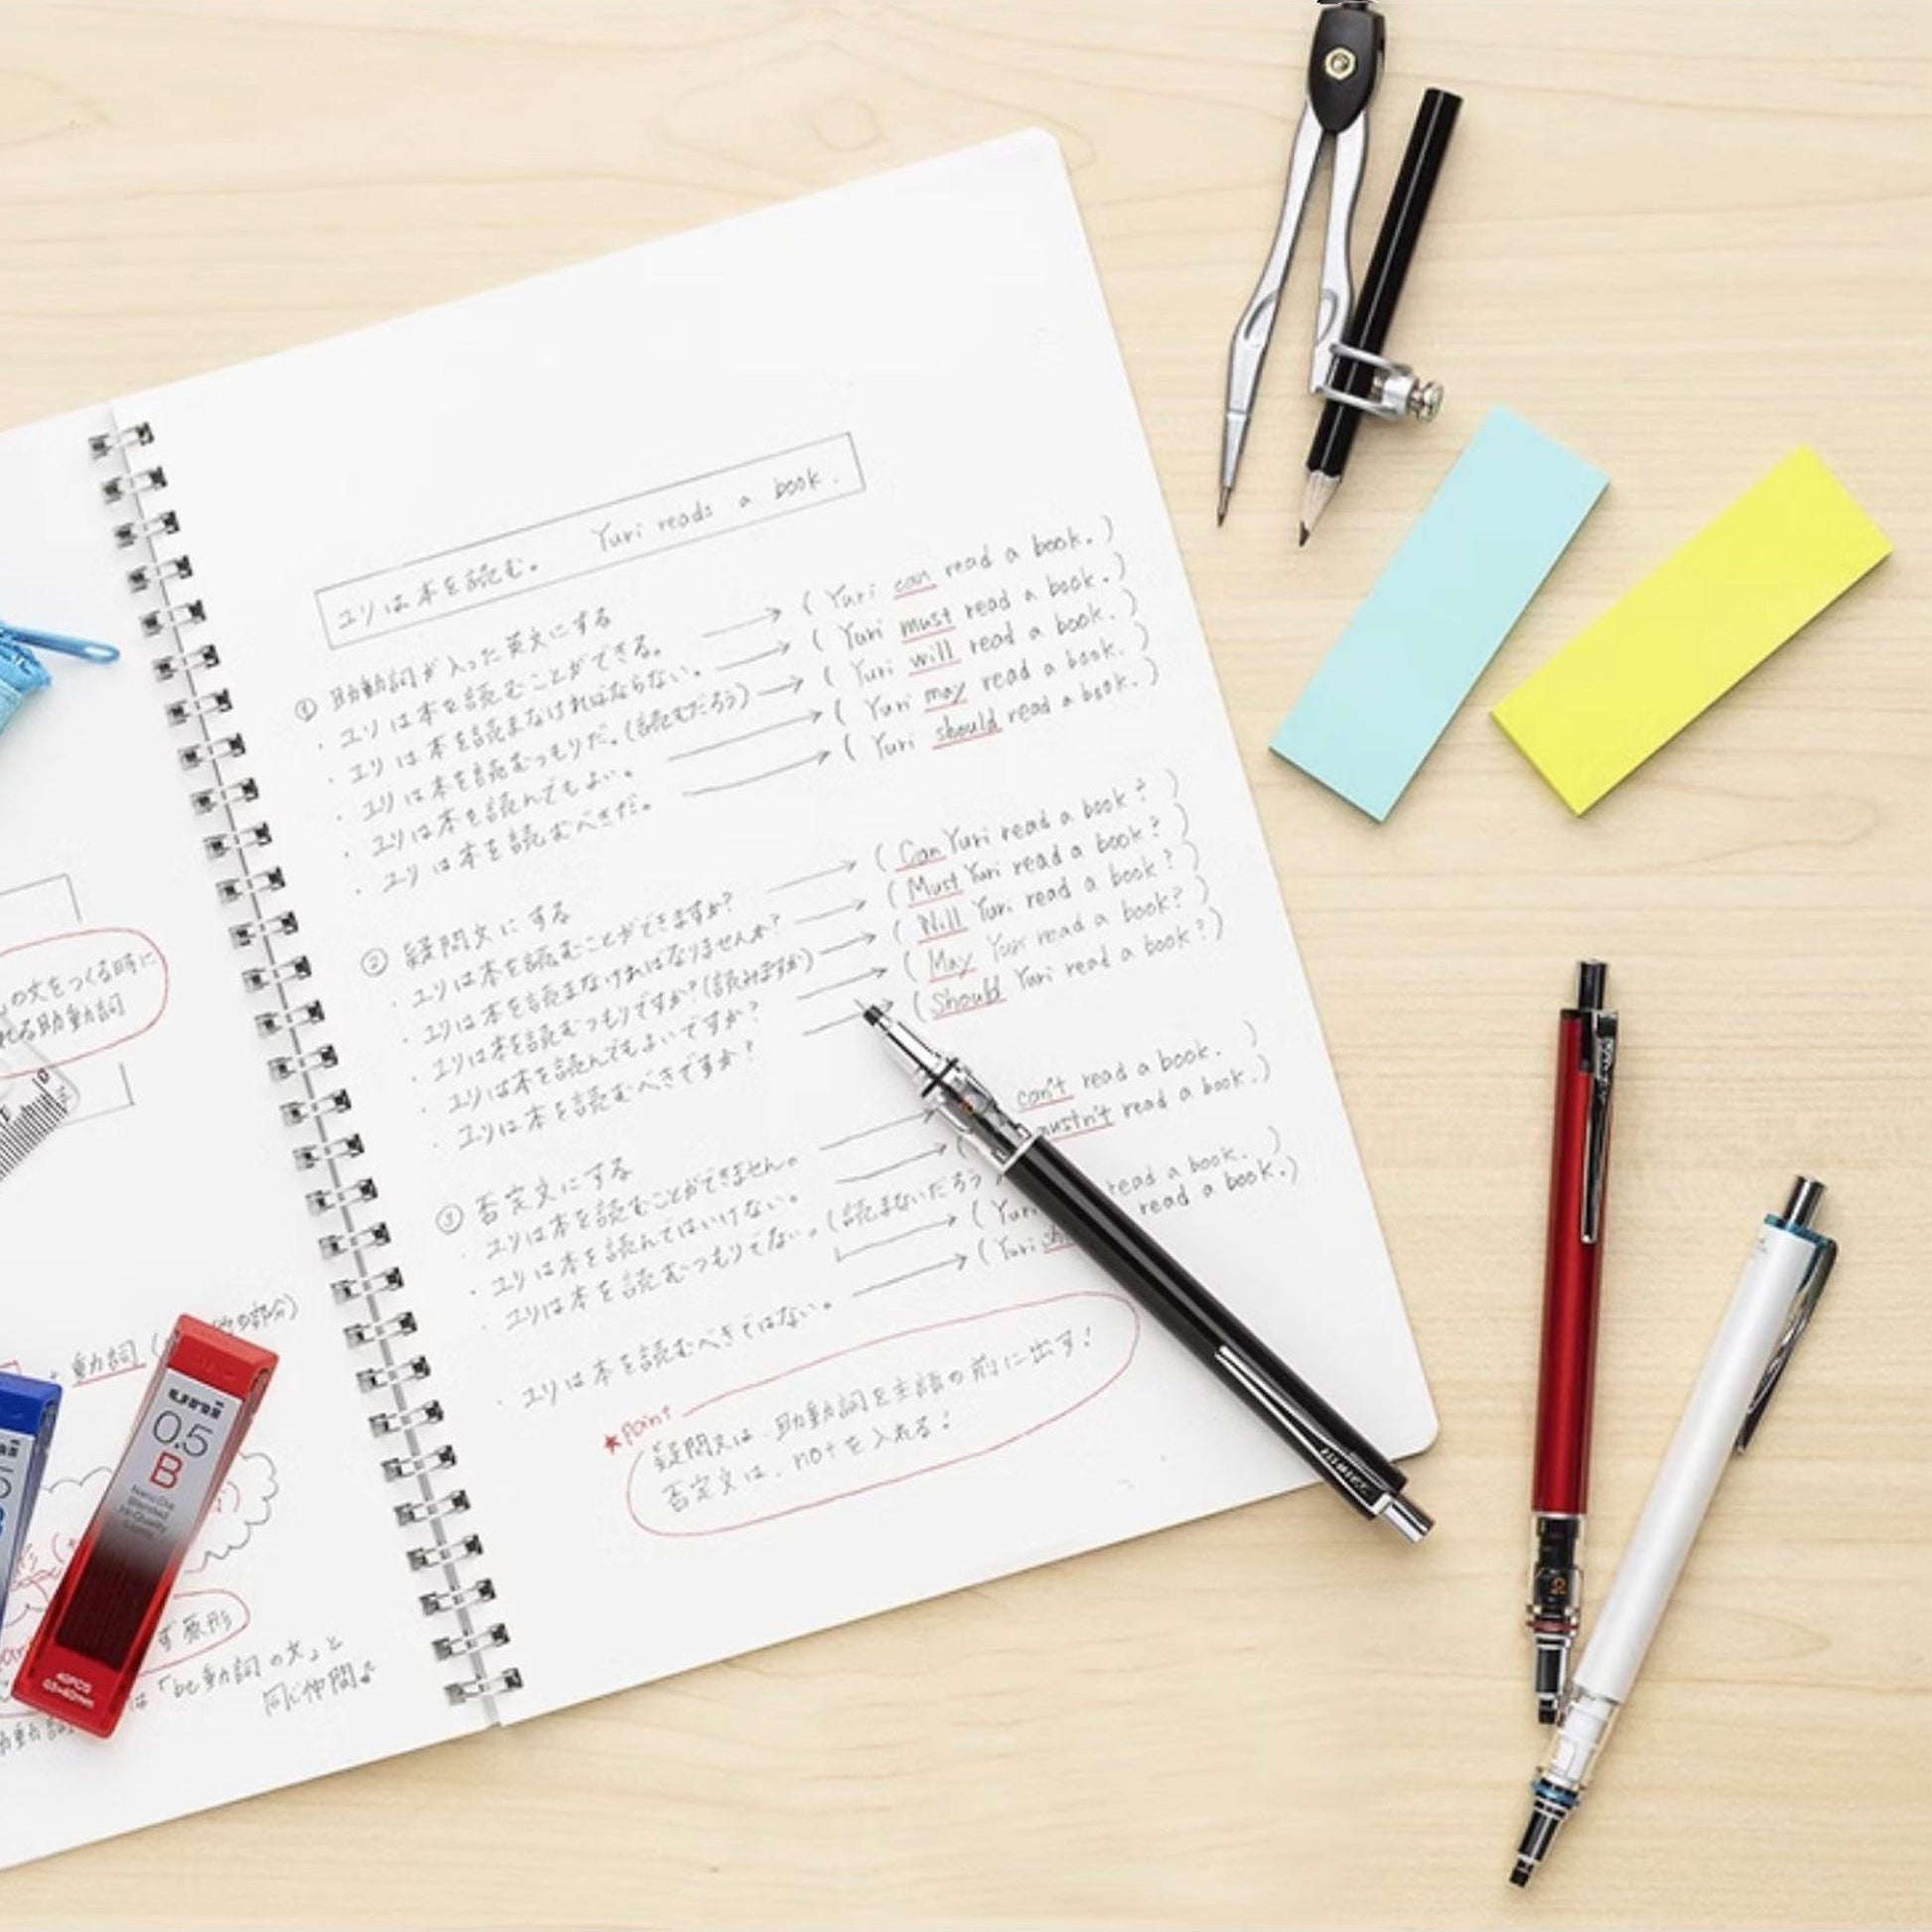 の文をつくる時に
れる助動詞
動詞(
部分)
uni
0.5
B
Nano Dia
Blended
Hi-Quality
40PCS
0.5×60mm
ず原形
は「be動詞の文」と
同じ仲間♪
ユリは本を読む。 Yuri reads a book.
① 助動詞が入った英文にする
・ユリは本を読むことができる。 → (Yuri can read a book.)
・ユリは本を読まなければならない。 → (Yuri must read a book.)
・ユリは本を読むつもりだ。(読むだろう) → (Yuri will read a book.)
・ユリは本を読んでもよい。 → (Yuri may read a book.)
・ユリは本を読むべきだ。 → (Yuri should read a book.)
② 疑問文にする
・ユリは本を読むことができますか? → (Can Yuri read a book?)
・ユリは本を読まなければなりませんか? → (Must Yuri read a book?)
・ユリは本を読むつもりですか?(読みますか) → (Will Yuri read a book?)
・ユリは本を読んでもよいですか? → (May Yuri read a book?)
・ユリは本を読むべきですか? → (Should Yuri read a book?)
③ 否定文にする
・ユリは本を読むことができません。 → can't read a book.)
・ユリは本を読んではいけない。 → ( mustn't read a book.)
・ユリは本を読むつもりでない。(読まないだろう → (Yuri read a book.)
・ユリは本を読むべきではない。 → (Yuri read a book.)
★Point
疑問文は、助動詞を主語の前に出す!
否定文は、notを入れる!